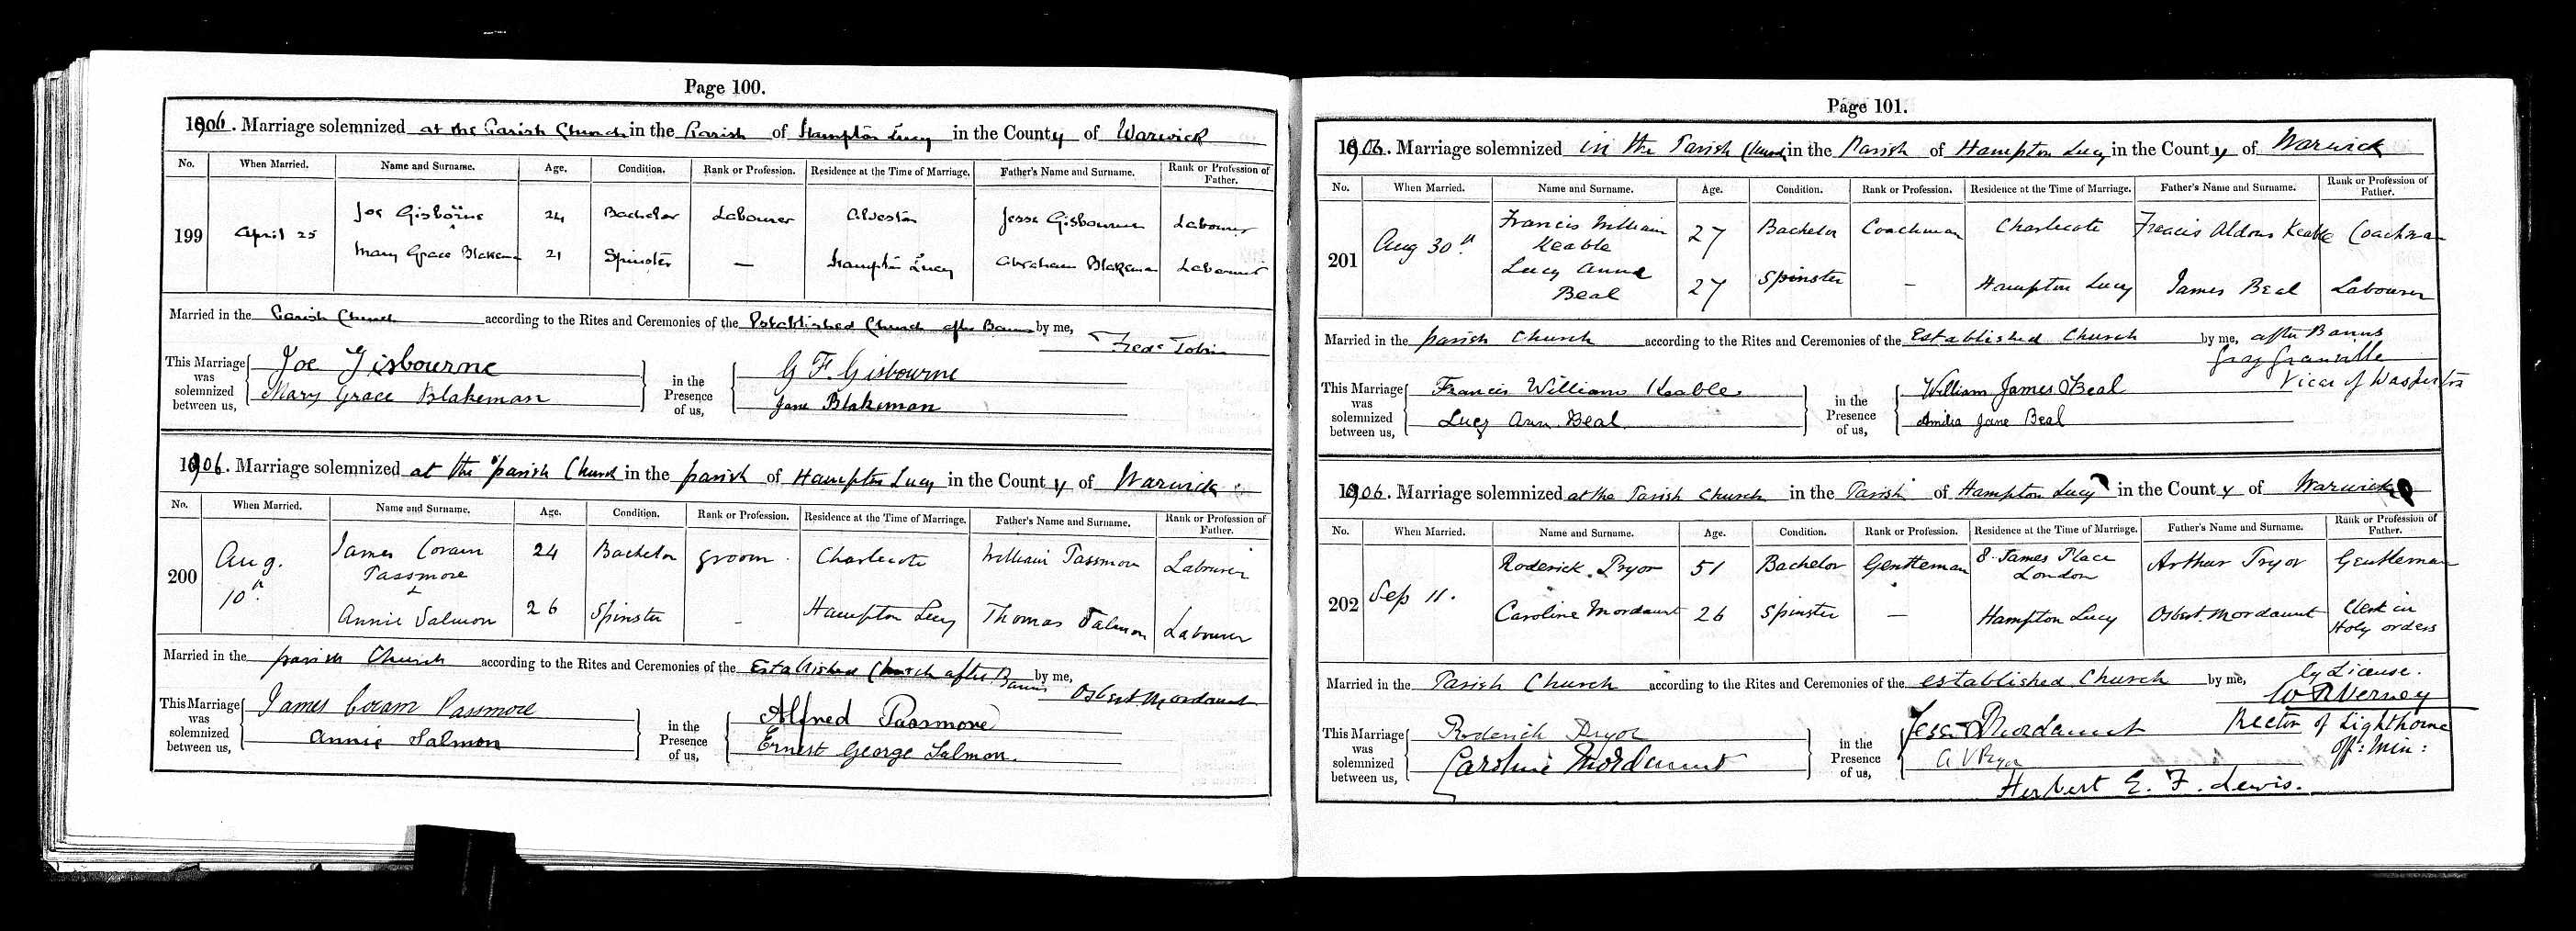 Page 100.
1906. Marriage solemnized at the Parish Church in the Parish of Hampton Lucy in the County of Warwick
No. When Married. Name and Surname. Age. Condition. Rank or Profession. Residence at the Time of Marriage. Father's Name and Surname. Rank or Profession of Father.
199 April 25 Joe Gisborne 24 Bachelor Labourer Alveston Jesse Gisbourne Labourer
Mary Grace Blakeman 21 Spinster — Hampton Lucy Abraham Blakeman Labourer
Married in the Parish Church according to the Rites and Ceremonies of the Established Church after Banns by me,
Fredc Tobin
This Marriage was solemnized between us, Joe Gisbourne in the Presence of us, G F. Gisbourne
Mary Grace Blakeman Jane Blakeman
1906. Marriage solemnized at the parish Church in the parish of Hampton Lucy in the County of Warwick
No. When Married. Name and Surname. Age. Condition. Rank or Profession. Residence at the Time of Marriage. Father's Name and Surname. Rank or Profession of Father.
200 Aug. 10th James Coram Passmore 24 Bachelor groom Charlecote William Passmore Labourer
Annie Salmon 26 Spinster - Hampton Lucy Thomas Salmon Labourer
Married in the parish Church according to the Rites and Ceremonies of the Established Church after Banns by me,
Osbert Mordaunt
This Marriage was solemnized between us, James Coram Passmore in the Presence of us, Alfred Passmore
Annie Salmon Ernest George Salmon.
Page 101.
1906. Marriage solemnized in the Parish Church in the Parish of Hampton Lucy in the County of Warwick
No. When Married. Name and Surname. Age. Condition. Rank or Profession. Residence at the Time of Marriage. Father's Name and Surname. Rank or Profession of Father.
201 Aug 30th. Francis William Keable 27 Bachelor Coachman Charlecote Francis Aldous Keable Coachman
Lucy Anne Beal 27 Spinster - Hampton Lucy James Beal Labourer
Married in the parish Church according to the Rites and Ceremonies of the Established Church by me, after Banns
Gray Granville
Vicar of Wasperton
This Marriage was solemnized between us, Francis William Keable in the Presence of us, William James Beal
Lucy Ann Beal Amelia Jane Beal
1906. Marriage solemnized at the Parish Church in the Parish of Hampton Lucy in the County of Warwick
No. When Married. Name and Surname. Age. Condition. Rank or Profession. Residence at the Time of Marriage. Father's Name and Surname. Rank or Profession of Father.
202 Sep 11. Roderick Pryor 51 Bachelor Gentleman 8. James Place London Arthur Pryor Gentleman
Caroline Mordaunt 26 Spinster — Hampton Lucy Osbert Mordaunt Clerk in Holy orders
Married in the Parish Church according to the Rites and Ceremonies of the established Church by me, by License.
W R Verney
Rector of Lighthorne
Off: Min:
This Marriage was solemnized between us, Roderick Pryor in the Presence of us, Mordaunt
Caroline Mordaunt A V Pryor
Herbert E. F. Lewis.